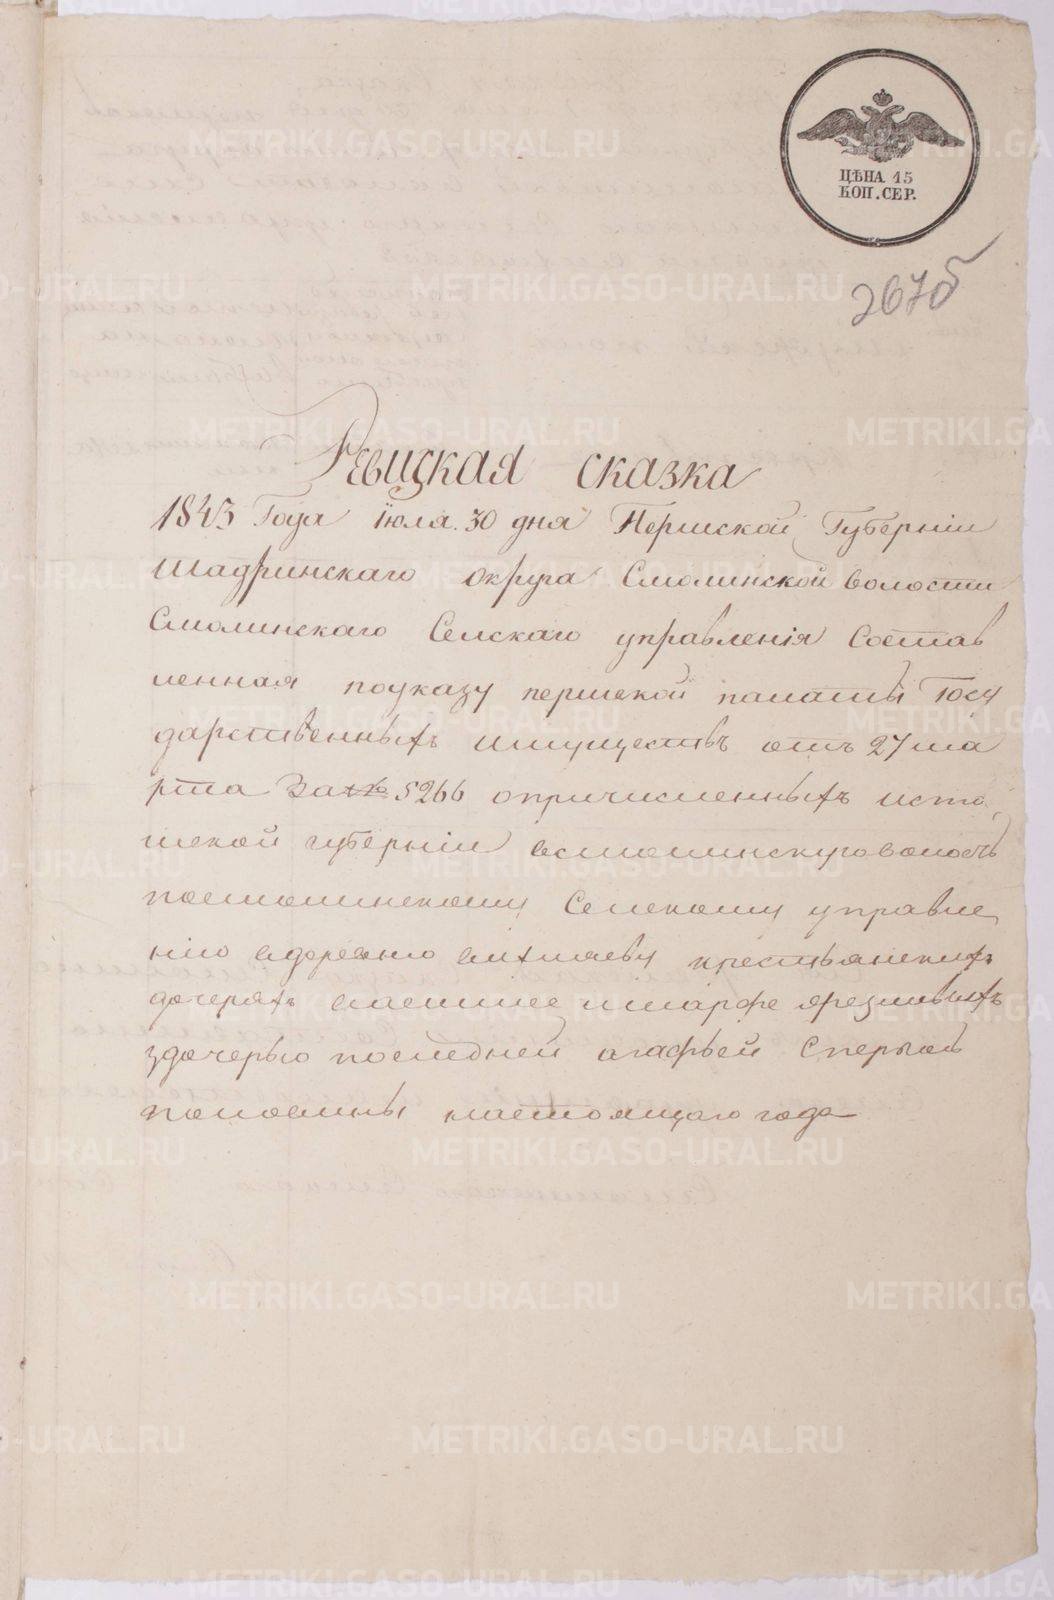 ЦѢНА 15
КОП. СЕР.
267б
Ревиская сказка
1843 Года іюля 30 дня Пермской Губерніи
Шадринскаго округа Смолинской волости
Смолинскаго Селскаго управленія Состав
ленная поуказу пермской палаты Госу
дарственныхъ имуществъ отъ 27 ма
рта За № 5266 опричисленныхъ исто
мской губерніи всмолинскуюволость
посмолинскому Селскому управле
нію вдеревню крестьянскихъ
дочеряхъ имарфе
здочерью последней агафьей Сперьвой
половины настоящаго года